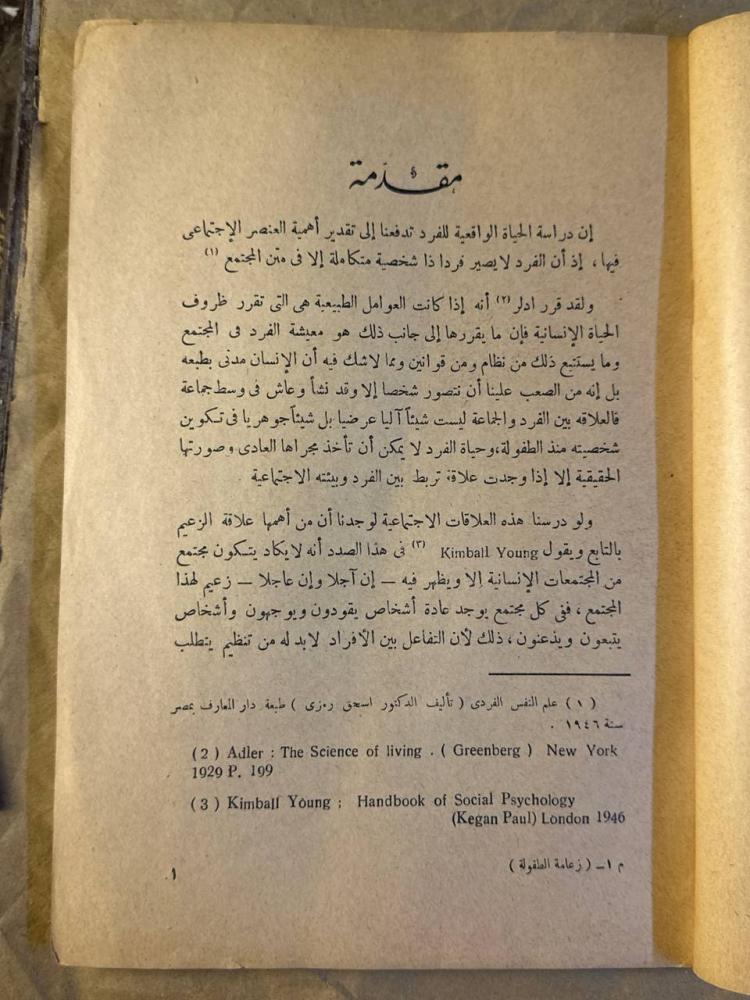 مقدمة
إن دراسة الحياة الواقعية للفرد تدفعنا إلى تقدير أهمية العنصر الإجتماعى
فيها ، إذ أن الفرد لايصير فردا ذا شخصية متكاملة إلا فى متن المجتمع (١)
ولقد قرر ادلر(٢) أنه إذا كانت العوامل الطبيعية هى التى تقرر ظروف
الحياة الإنسانية فإن ما يقررها إلى جانب ذلك هو معيشة الفرد فى المجتمع
وما يستتبع ذلك من نظام ومن قوانين ومما لاشك فيه أن الإنسان مدنى بطبعه
بل إنه من الصعب علينا أن نتصور شخصا إلا وقد نشأ وعاش فى وسط جماعة
فالعلاقه بين الفرد والجماعة ليست شيئاً آليا عرضيا بل شيئاً جوهريا فى تكوين
شخصيته منذ الطفولة،وحياة الفرد لا يمكن أن تأخذ مجراها العادى وصورتها
الحقيقية إلا إذا وجدت علاقة تربط بين الفرد وبيئته الاجتماعية .
ولو درسنا هذه العلاقات الاجتماعية لوجدنا أن من أهمها علاقة الزعيم
بالتابع ويقول Kimball Young (٣) فى هذا الصدد أنه لايكاد يتكون مجتمع
من المجتمعات الإنسانية إلا ويظهر فيه — إن آجلا وإن عاجلا — زعيم لهذا
المجتمع ، ففى كل مجتمع يوجد عادة أشخاص يقودون ويوجهون وأشخاص
يتبعون ويذعنون ، ذلك لأن التفاعل بين الأفراد لابد له من تنظيم يتطلب
( ١ ) علم النفس الفردى ( تأليف الدكتور اسحق رمزى ) طبعة دار المعارف بمصر
سنة ١٩٤٦ .
( 2 ) Adler : The Science of living . ( Greenberg ) New York
1929 P. 199
( 3 ) Kimball Young ; Handbook of Social Psychology
(Kegan Paul) London 1946
م ١ــ ( زعامة الطفولة )
١